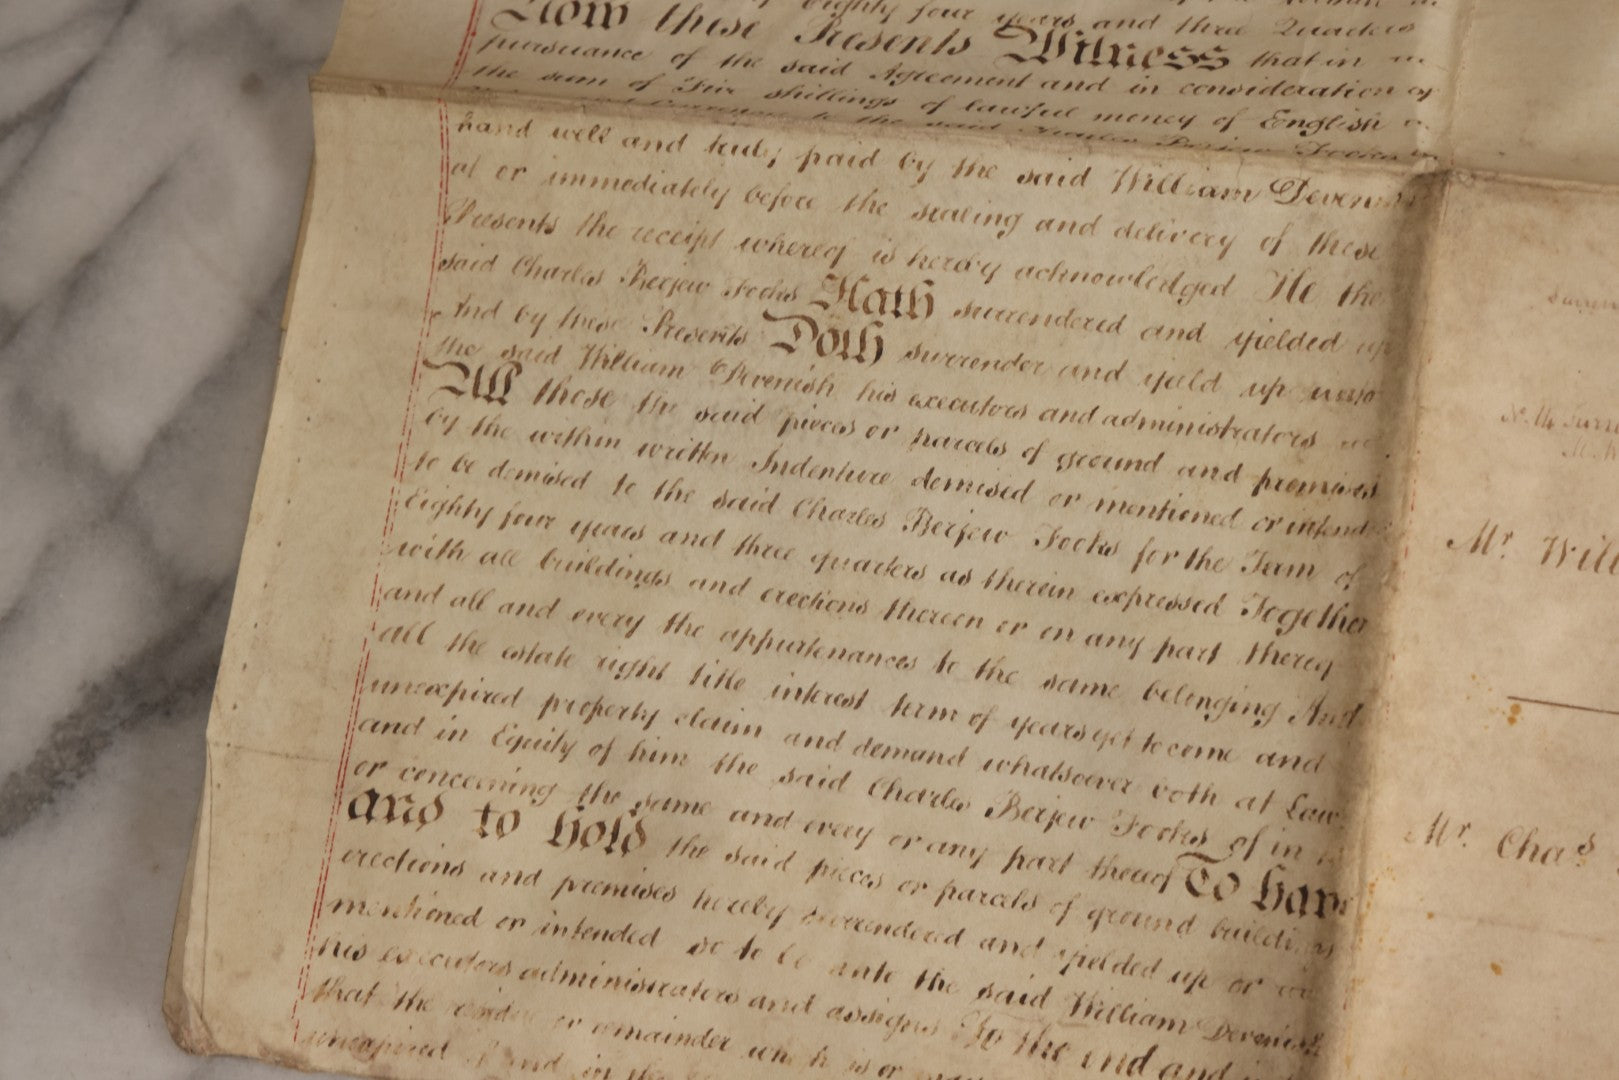 eighty four years and three Quarters
Now these Presents Witness that in
pursuance of the said Agreement and in consideration of
the sum of Five shillings of lawful money of English
to the said Fooks
hand well and truly paid by the said William Devenish
at or immediately before the sealing and delivery of these
Presents the receipt whereof is hereby acknowledged He the
said Charles Berjew Fooks Hath surrendered and yielded up
And by these Presents Doth surrender and yield up unto
the said William Devenish his executors and administrators
All those the said pieces or parcels of ground and premises
by the within written Indenture demised or mentioned or intend
to be demised to the said Charles Berjew Fooks for the Term of
Eighty four years and three quarters as therein expressed Together
with all buildings and erections thereon or on any part thereof
and all and every the appurtenances to the same belonging And
all the estate right title interest term of years yet to come and
unexpired property claim and demand whatsoever both at Law
and in Equity of him the said Charles Berjew Fooks of in
or concerning the same and every or any part thereof To have
and to hold the said pieces or parcels of ground buildings
erections and premises hereby surrendered and yielded up or
mentioned or intended so to be unto the said William Devenish
his executors administrators and assigns To the end and
that the residue or remainder which is or
unexpired of and in the
Mr. Will
Mr. Chas